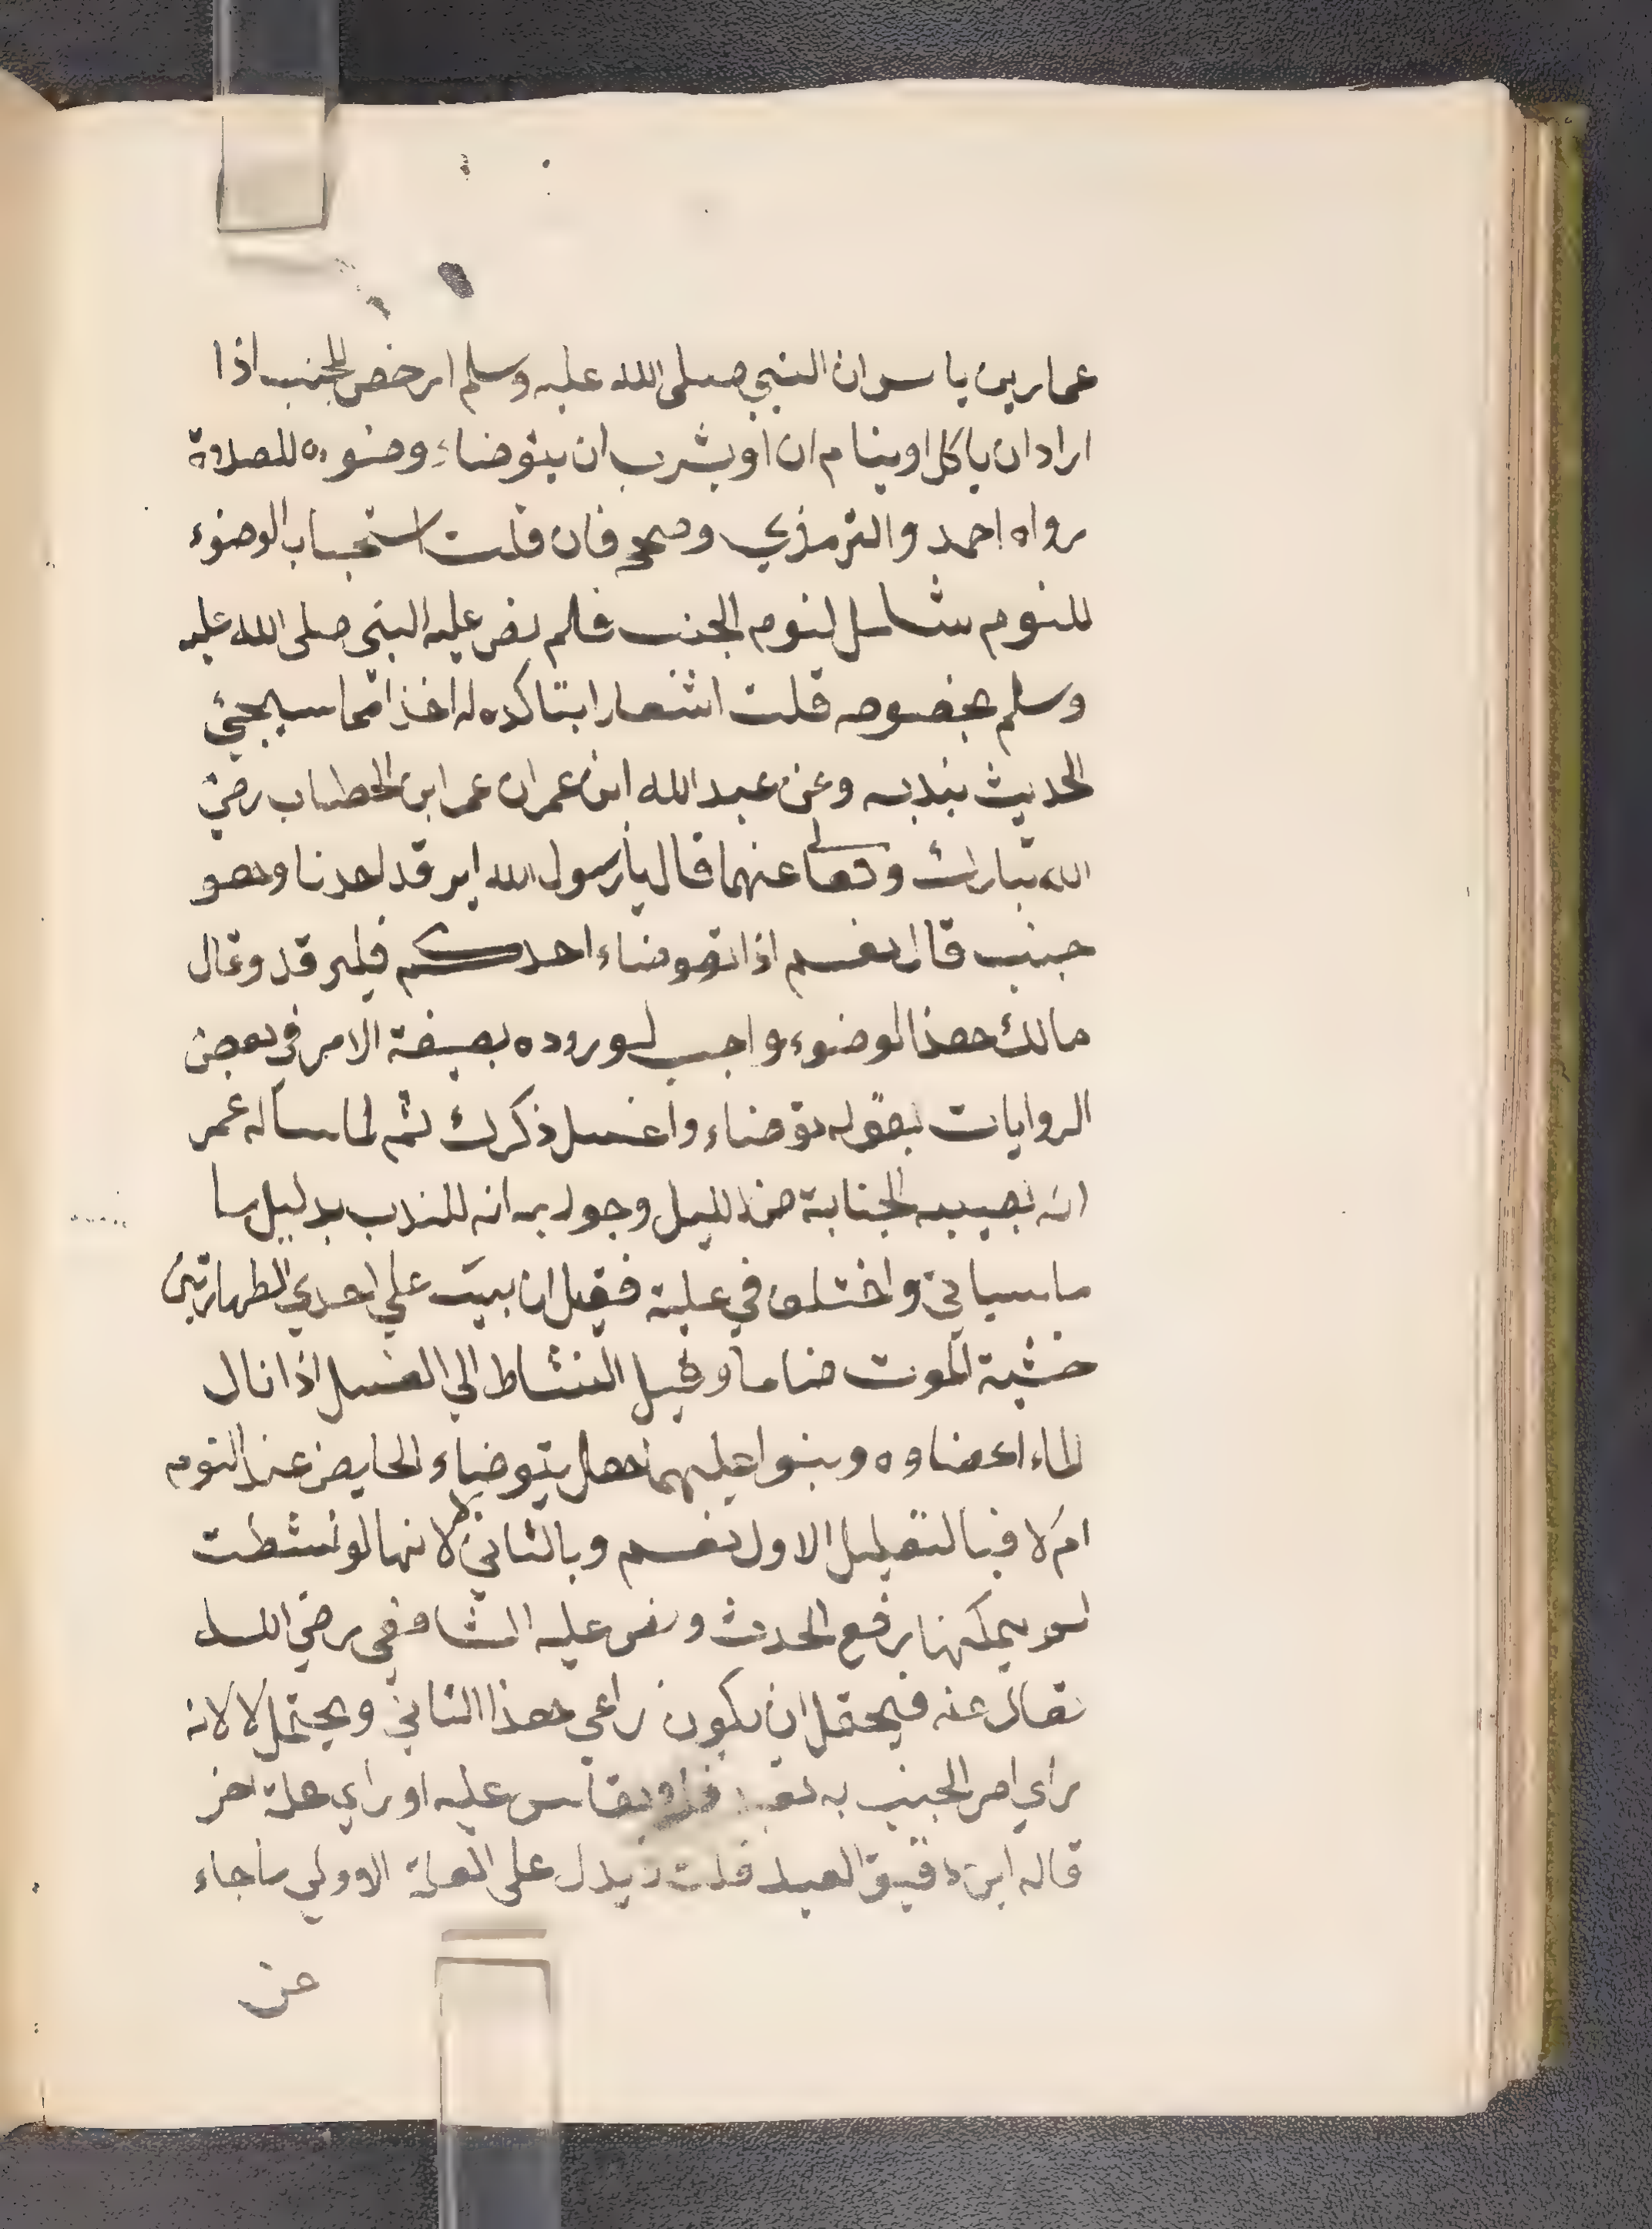 عمار بن ياسر ان النبي صلى الله عليه وسلم ارخص للجنب اذا
اراد ان ياكل او ينام ان او يشرب ان يتوضاء وضوءه للصلاة
رواه احمد والترمذي وصححه فان قلت استحباب الوضوء
للنوم شامل لنوم الجنب فلم نص عليه النبي صلى الله عليه
وسلم بخصوصه قلت اشعارا بتاكده له اخذا مما سيجئ
الحديث بندبه وعن عبد الله ابن عمر ان عمر ابن الخطاب رضي
الله تبارك وتعالى عنهما قال يا رسول الله ايرقد احدنا وهو
جنب قال نعم اذا توضاء احدكم فليرقد وقال
مالك هذا الوضوء واجب لوروده بصيغة الامر في بعض
الروايات بقوله توضاء واغسل ذكرك ثم لما ساله عمر
انه تصيبه الجنابة من الليل وجوابه انه للندب بدليل ما
ما سياتي واختلف في علته فقيل ان يبيت على احدي الطهارتين
خشية الموت مناما وقيل النشاط الي الغسل اذا نال
الماء اعضاوه وبنوا عليهما هل يتوضاء الحايض عند النوم
ام لا فبالتعليل الاول نعم وبالثاني لا لانها لو نشطت
لم يمكنها رفع الحدث ونص عليه الشافعي رضي الله
تعالى عنه فيحتمل ان يكون راعى هذا الثاني ويحتمل لا لانه
راي امر الجنب به تعبد فلا يقاس عليه او راي علة اخر
قاله ابن دقيق العيد قلت يدل على العلة الاولي ما جاء
عن